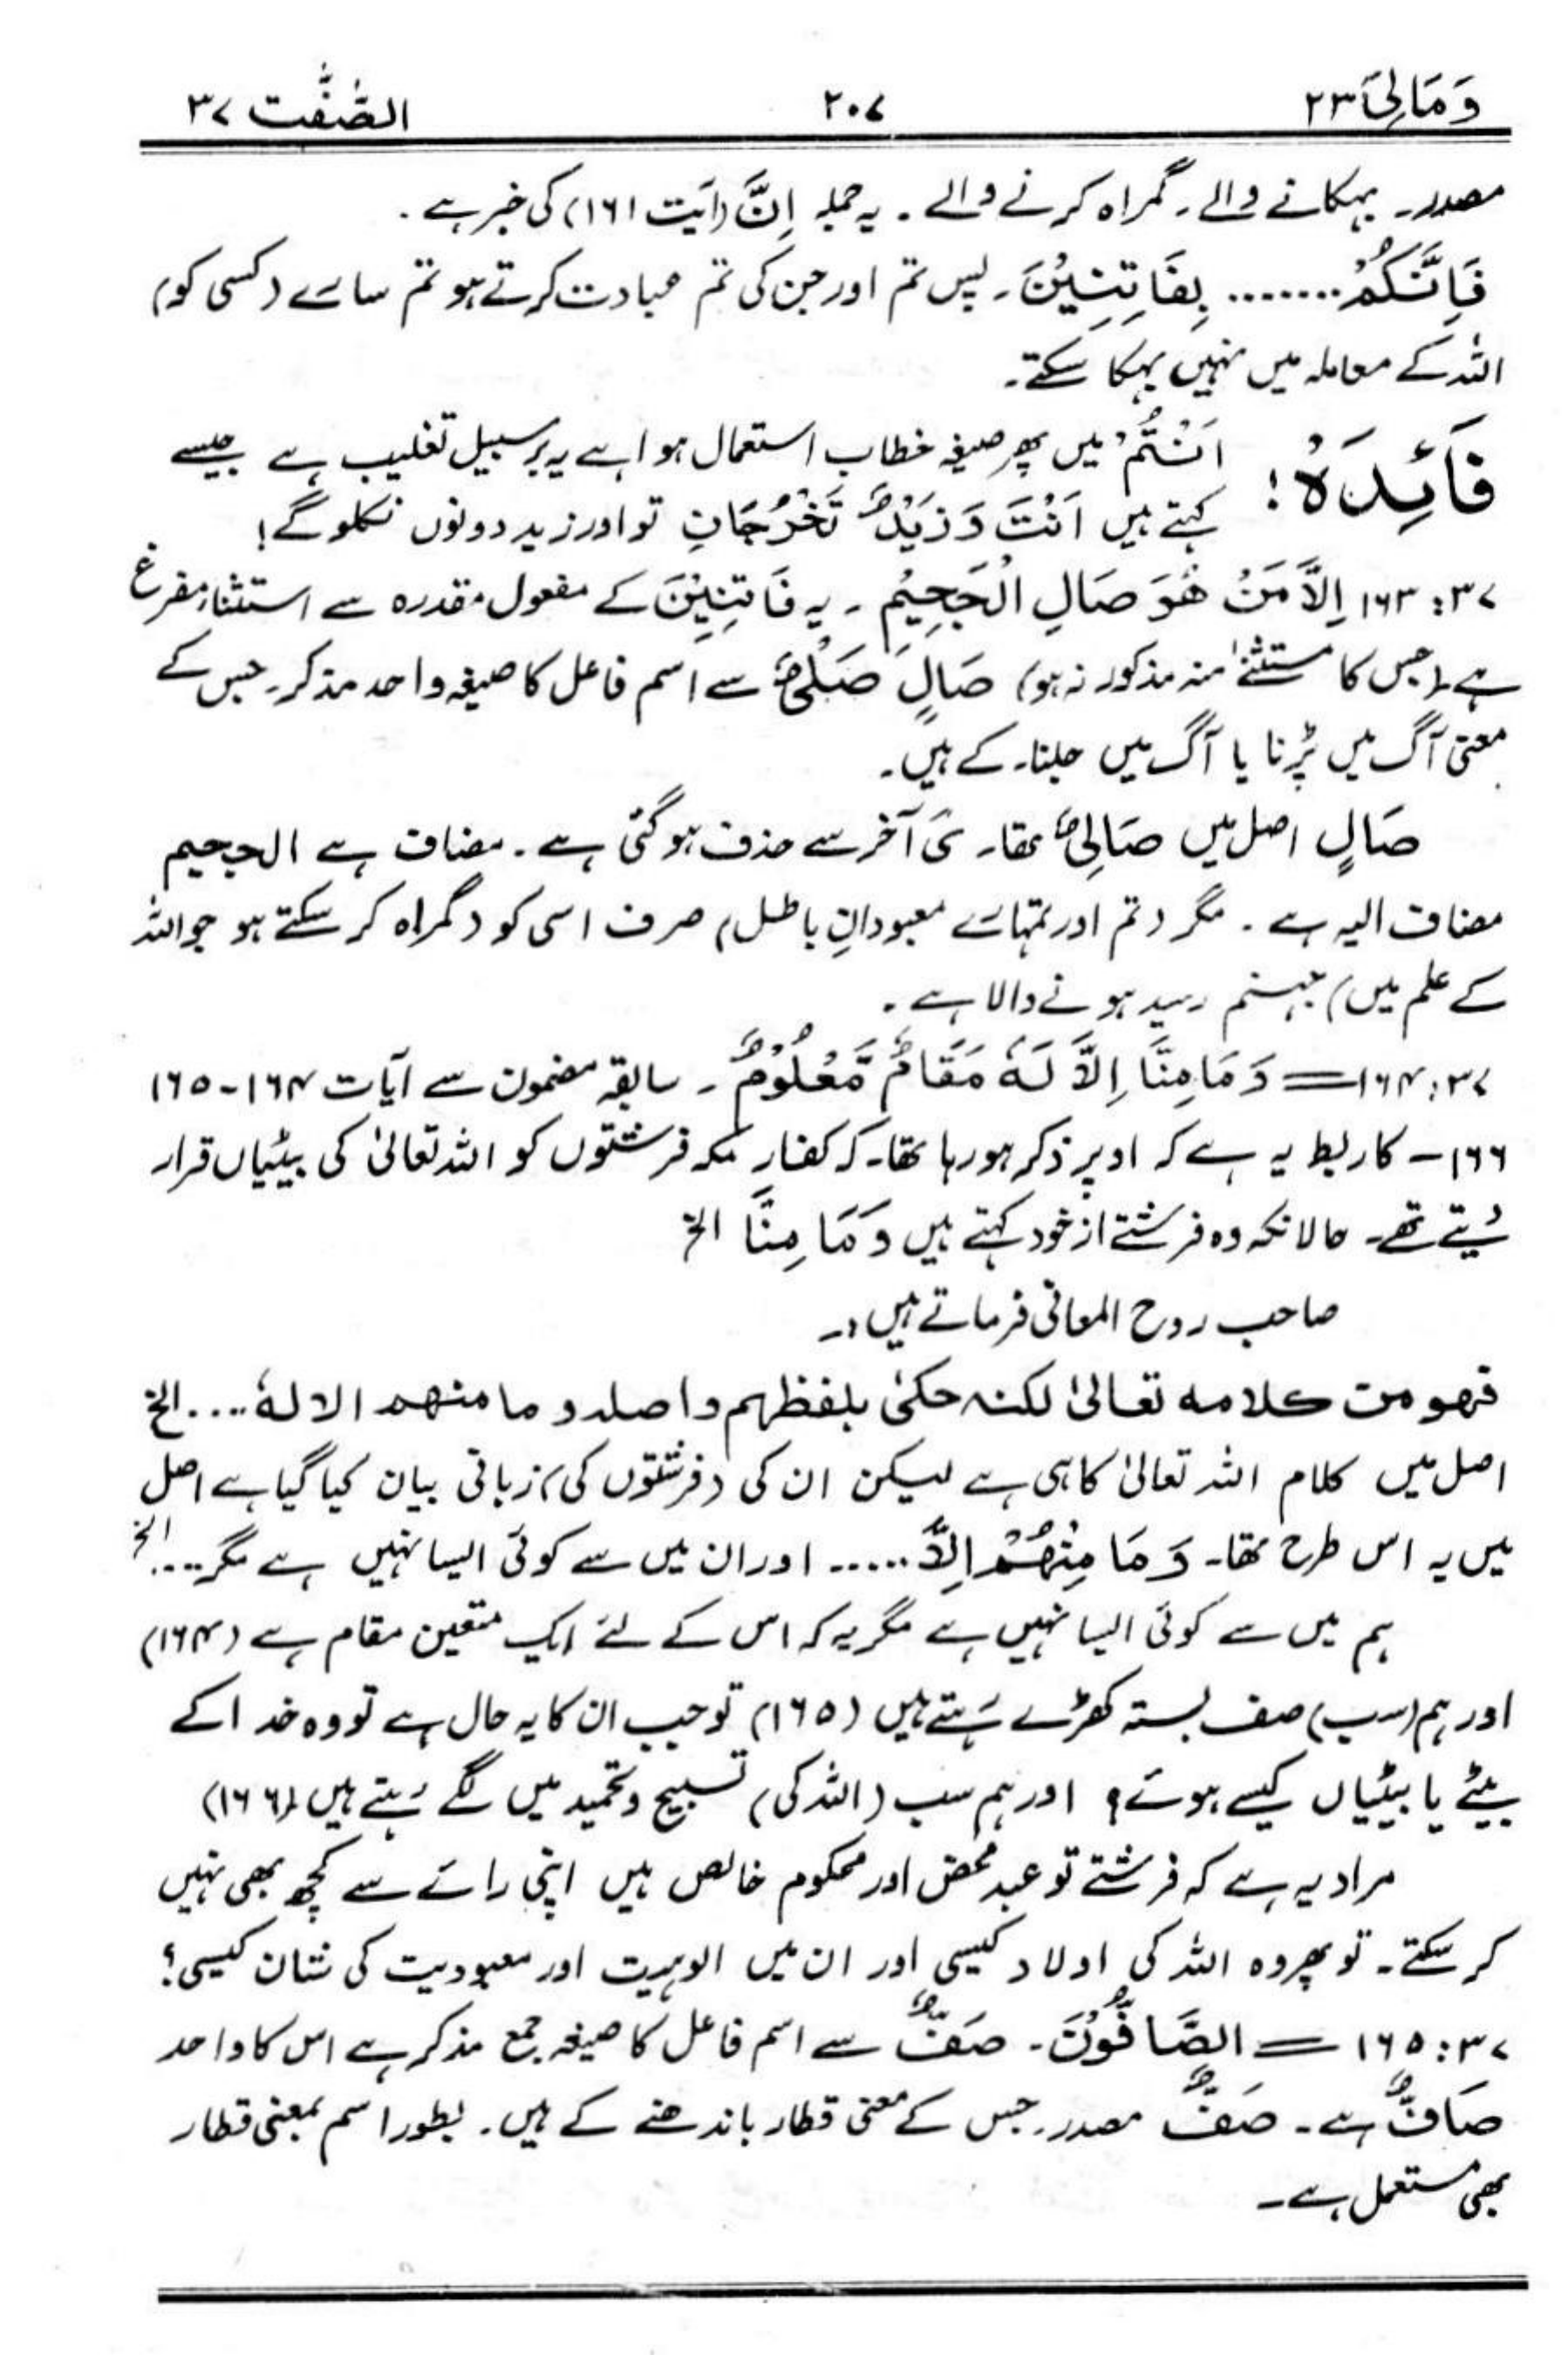 وَمَالِیَ ۲۳ ۲۰۷ الصّٰٓفّٰت ۳۷
مصدر۔ بہکانے والے۔ گمراہ کرنے والے۔ یہ جملہ اِنَّ (آیت ۱۶۱) کی خبر ہے۔
فَاِنَّكُمْ....... بِفَاتِنِيْنَ۔ پس تم اور جن کی تم عبادت کرتے ہو تم سارے (کسی کو)
اللہ کے معاملہ میں نہیں بہکا سکتے۔
فَائِدَہُ: اَنْتُمْ میں پھر صیغہ خطاب استعمال ہوا ہے یہ برسبیل تغلیب ہے جیسے
کہتے ہیں اَنْتَ وَ زَيْدٌ تَخْرُجَانِ تو اور زید دونوں نکلو گے!
۳۷: ۱۶۳ اِلَّا مَنْ هُوَ صَالِ الْجَحِيْمِ۔ یہ فَاتِنِيْنَ کے مفعول مقدرہ سے استثناء مفرغ
ہے (جس کا مستثنےٰ منہ مذکور نہ ہو) صَالٍ صَلْیٌ سے اسم فاعل کا صیغہ واحد مذکر۔ جس کے
معنی آگ میں پڑنا یا آگ میں جلنا۔ کے ہیں۔
صَالٍ اصل میں صَالِیٌ تھا۔ یَ آخر سے حذف ہو گئی ہے۔ مضاف ہے الجحیم
مضاف الیہ ہے۔ مگر (تم اور تمہارے معبودانِ باطل) صرف اسی کو (گمراہ کر سکتے ہو جو اللہ
کے علم میں) جہنم رسید ہونے والا ہے۔
۳۷: ۱۶۴ = وَمَا مِنَّا اِلَّا لَهٗ مَقَامٌ مَّعْلُوْمٌ۔ سابقہ مضمون سے آیات ۱۶۴-۱۶۵
۱۶۶- کا ربط یہ ہے کہ اوپر ذکر ہو رہا تھا۔ کہ کفارِ مکہ فرشتوں کو اللہ تعالیٰ کی بیٹیاں قرار
دیتے تھے۔ حالانکہ وہ فرشتے از خود کہتے ہیں وَمَا مِنَّا الخ
صاحب روح المعانی فرماتے ہیں:۔
فهو من كلامه تعالىٰ لكنه حكىٰ بلفظهم واصله و ما منهم الا لهٗ.... الخ
اصل میں کلام اللہ تعالیٰ کا ہی ہے لیکن ان کی (فرشتوں کی) زبانی بیان کیا گیا ہے اصل
میں یہ اس طرح تھا۔ وَمَا مِنْهُمْ اِلَّا...... اور ان میں سے کوئی ایسا نہیں ہے مگر.... الخ
ہم میں سے کوئی ایسا نہیں ہے مگر یہ کہ اس کے لئے ایک متعین مقام ہے (۱۶۴)
اور ہم (سب) صف بستہ کھڑے رہتے ہیں (۱۶۵) تو جب ان کا یہ حال ہے تو وہ خدا کے
بیٹے یا بیٹیاں کیسے ہوئے؟ اور ہم سب (اللہ کی) تسبیح و تحمید میں لگے رہتے ہیں (۱۶۶)
مراد یہ ہے کہ فرشتے تو عبد محض اور محکوم خالص ہیں اپنی رائے سے کچھ بھی نہیں
کر سکتے۔ تو پھر وہ اللہ کی اولاد کیسی اور ان میں الوہیت اور معبودیت کی شان کیسی؟
۳۷: ۱۶۵ = الصَّافُّوْنَ۔ صَفٌّ سے اسم فاعل کا صیغہ جمع مذکر ہے اس کا واحد
صَافٌّ ہے۔ صَفٌّ مصدر۔ جس کے معنی قطار باندھنے کے ہیں۔ بطور اسم بمعنی قطار
بھی مستعمل ہے۔